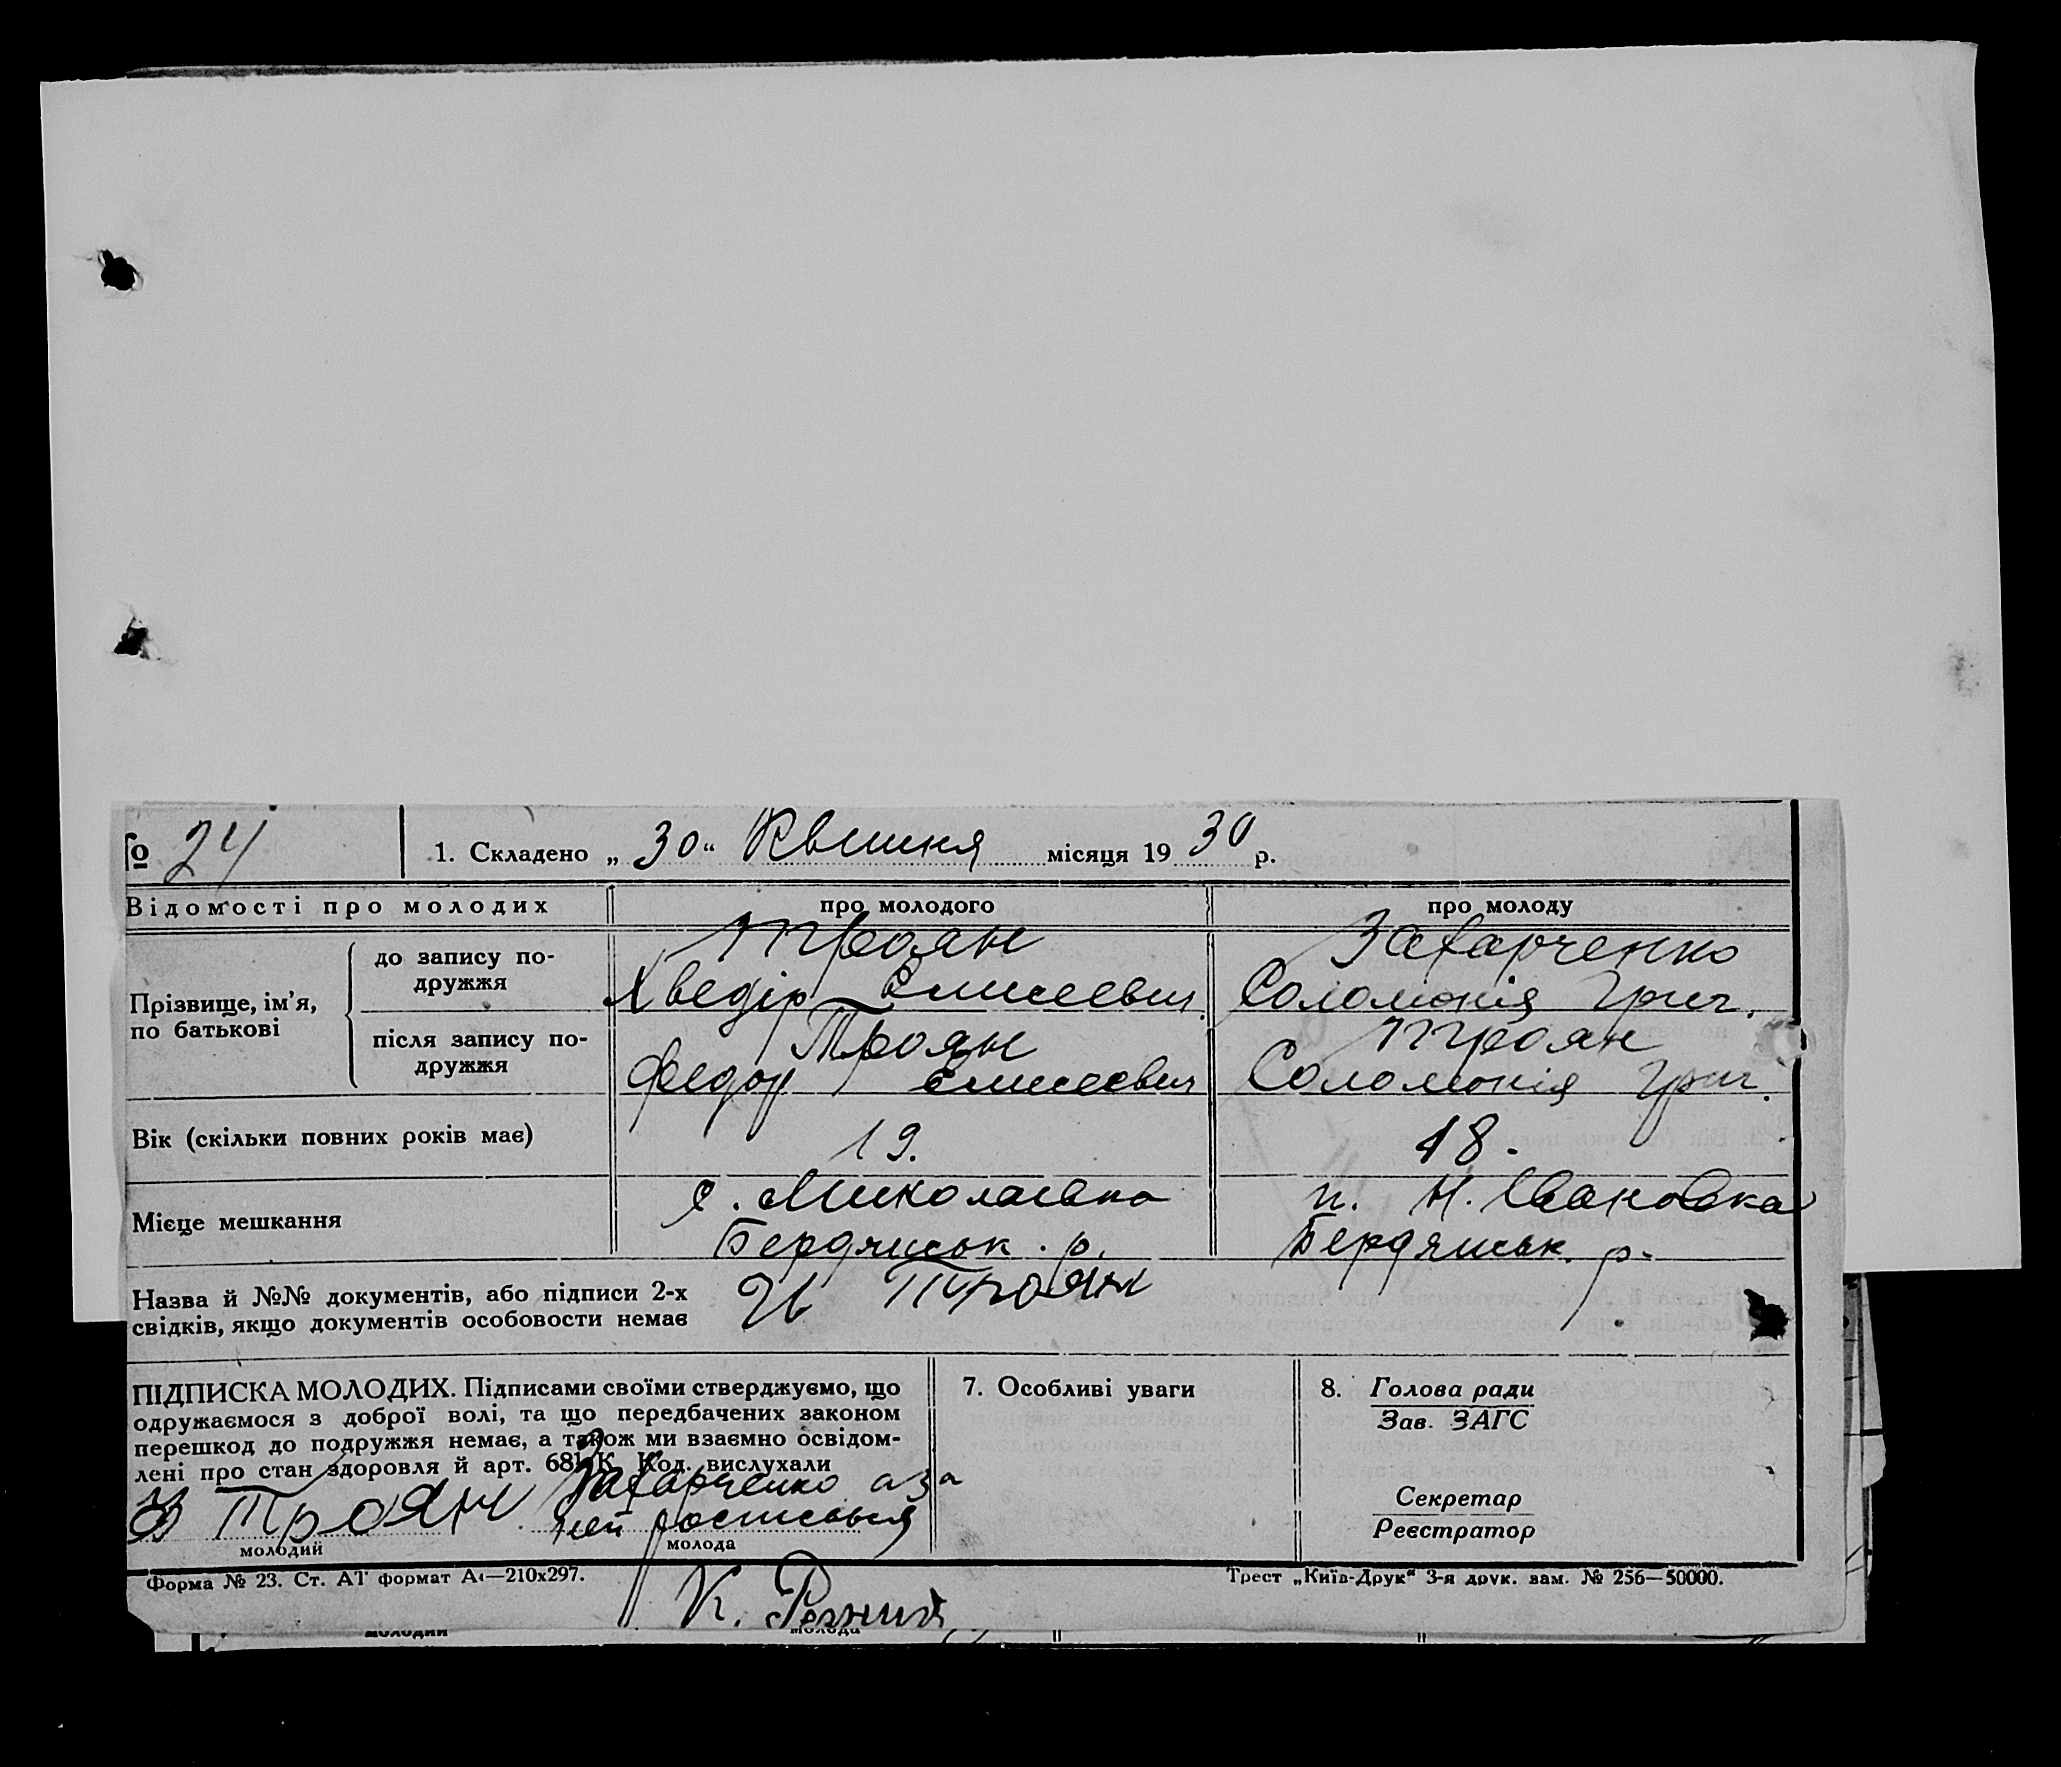 № 24
1. Складено „ 30 “ Квитня місяця 19 30 р.
Відомості про молодих
про молодого
про молоду
Прізвище, ім’я, по батькові
до запису подружжя
Троян
Хведір Єлисеевич.
Захарченко
Соломонія Григ.
після запису подружжя
Троян
Федор Елисеевич
Троян
Соломонія Григ.
Вік (скільки повних років має)
19.
18.
Місце мешкання
с. Миколаевка
Бердянськ. р.
п. Н. Івановка
Бердянськ. р.
Назва й №№ документів, або підписи 2-х
свідків, якщо документів особовости немає
Троян
ПІДПИСКА МОЛОДИХ. Підписами своїми стверджуємо, що
одружаємося з доброї волі, та що передбачених законом
перешкод до подружжя немає, а також ми взаємно освідом-
лені про стан здоровля й арт. 68 К. Код. вислухали
Троян
Захарченко а за
ней росписався
молодий
молода
К. Резник
7. Особливі уваги
8. Голова ради
Зав. ЗАГС
Секретар
Реєстратор
Форма № 23. Ст. АТ формат А4—210х297.
Трест „Київ-Друк“ 3-я друк. зам. № 256—50000.
молодий
молода